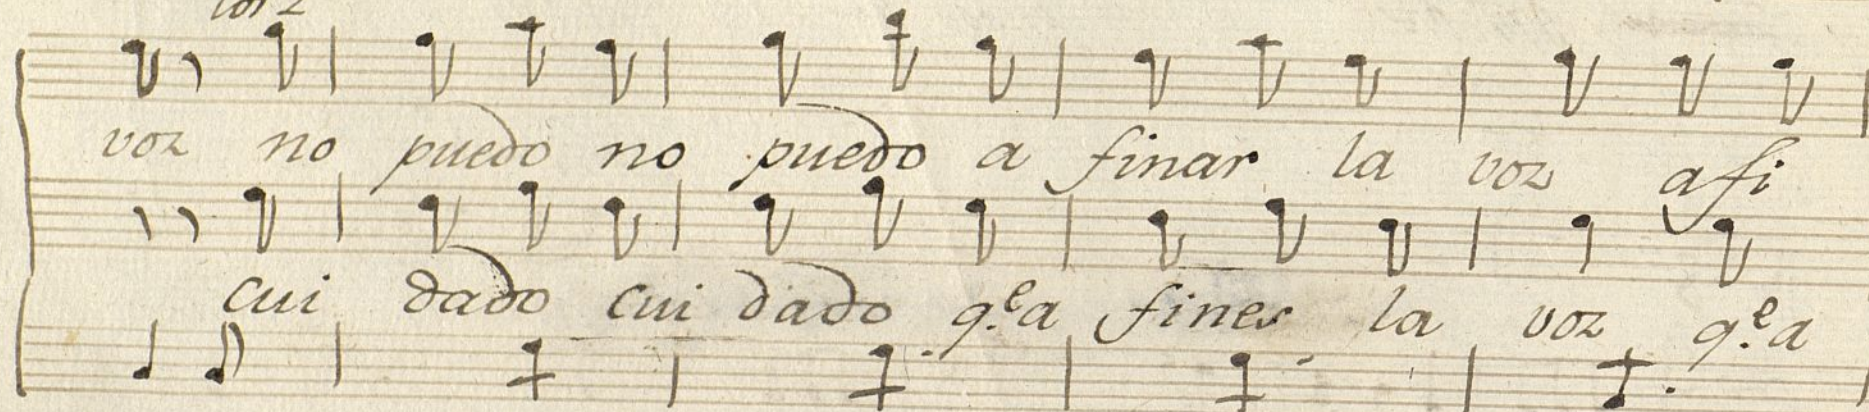 los 2
voz no puedo no puedo a finar la voz afi
cui dado cui dado q.e a fines la voz q.e a